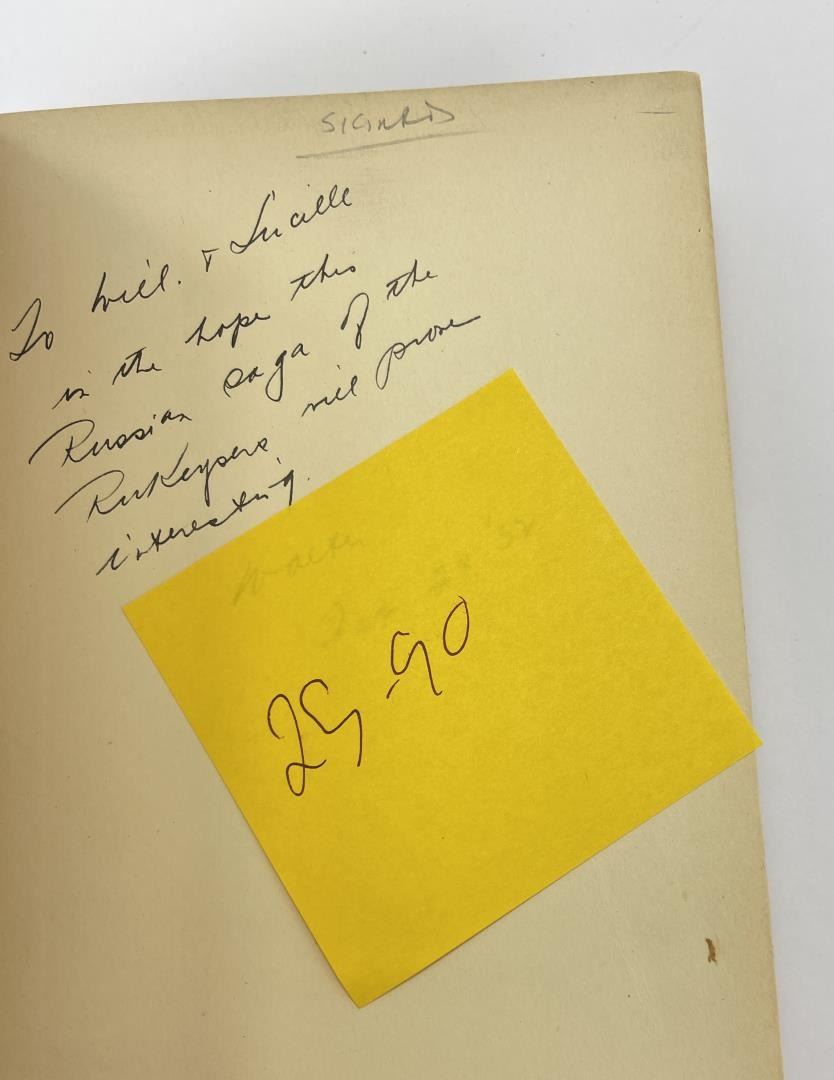 SIGNED
To Will. & Lucille
in the hope this
Russian saga of the
RuKeysers will prove
interesting.
Walter
29.90